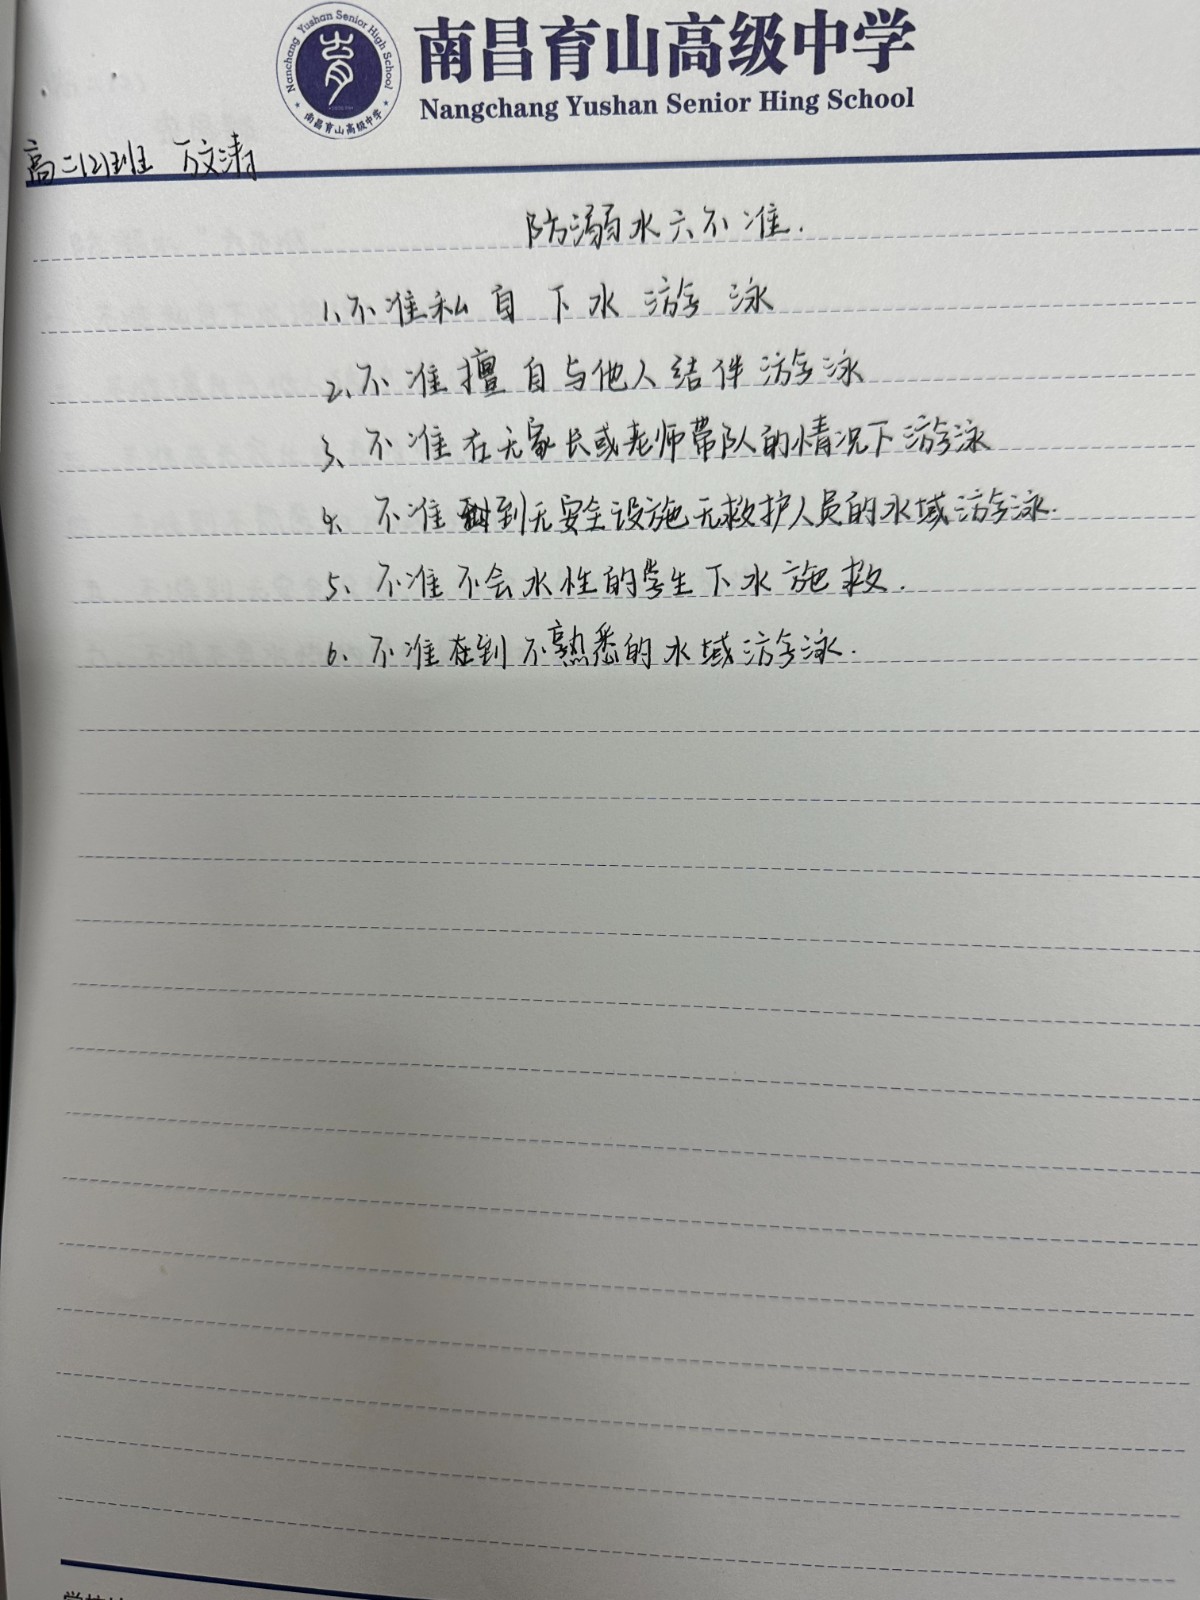 Nanchang Yushan Senior High School
南昌育山高级中学
南昌育山高级中学
Nangchang Yushan Senior Hing School
高二(2)班 万文涛
防溺水六不准.
1、不准私自下水游泳
2、不准擅自与他人结伴游泳
3、不准在无家长或老师带队的情况下游泳
4、不准到无安全设施无救护人员的水域游泳.
5、不准不会水性的学生下水施救.
6、不准到不熟悉的水域游泳.